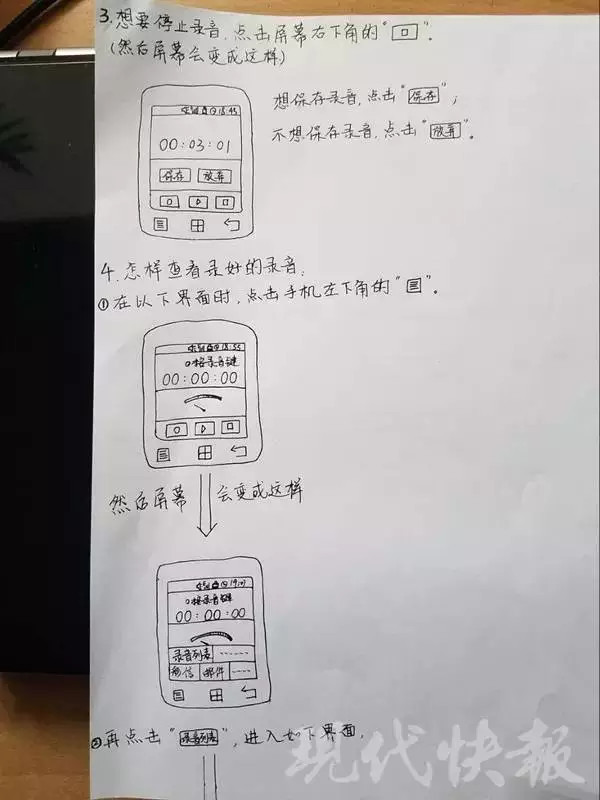 3.想要停止录音,点击屏幕右下角的"回".
(然后屏幕会变成这样)
想保存录音,点击"保存";
不想保存录音,点击"放弃"。
18:45
00:03:01
保存 放弃
4.怎样查看录好的录音:
①在以下界面时,点击手机左下角的"".
18:55
按录音键
00:00:00
然后屏幕会变成这样
按录音键
00:00:00
录音列表
彩信 邮件
②再点击"录音列表",进入如下界面.
现代快报